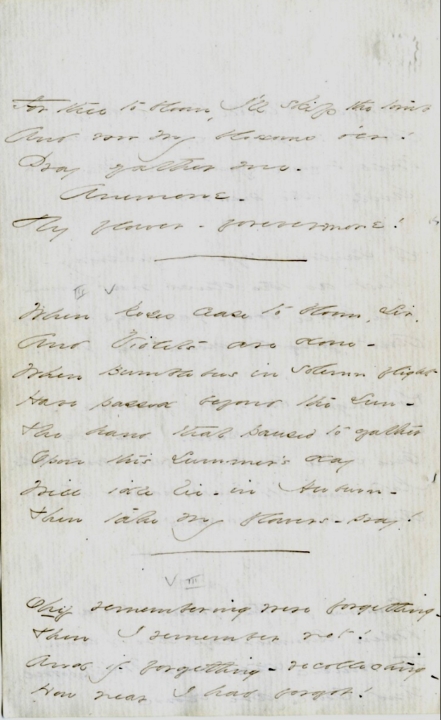 For thee to bloom, I'll skip the tomb
And row my blossoms o'er!
Pray gather me -
Anemone -
Thy flower - forevermore!
III V
When Roses cease to bloom, Sir,
And Violets are done -
When Bumblebees in solemn flight
Have passed beyond the Sun -
The hand that paused to gather
Upon this Summer's day
Will idle lie - in Auburn -
Then take my flowers - pray!
VIII
Oh if remembering were forgetting -
Then I remember not!
And if forgetting - recollecting -
How near I had forgot!